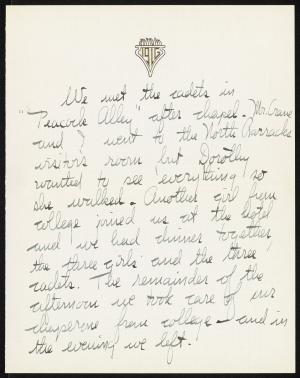 We met the cadets in
"Peacock Alley" after chapel. Mr. Crane
and I went to the North Barracks
visitors room but Dorothy
wanted to see everything so
she walked. Another girl from
college joined us at the hotel
and we had dinner together,
the three girls and the three
cadets. The remainder of the
afternoon we took care of our
chaperone from college – and in
the evening we left.